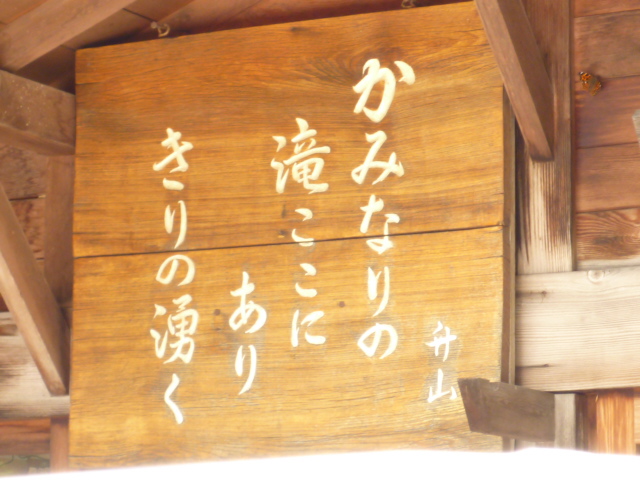 かみなりの
滝ここに
あり
きりの湧く
舟山